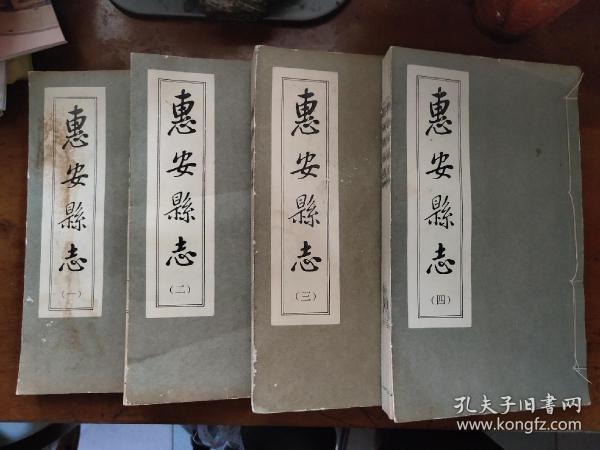 惠安縣志
（一）
惠安縣志
（二）
惠安縣志
（三）
惠安縣志
（四）
孔夫子旧書网
www.kongfz.com